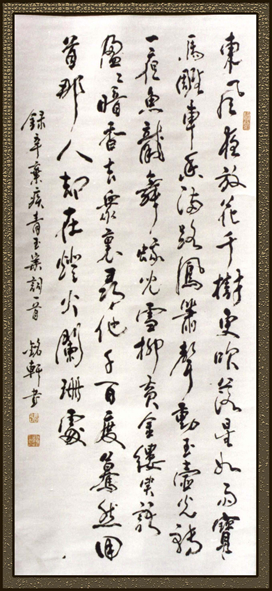 東風夜放花千樹更吹落星如雨寶
馬雕車香滿路鳳簫聲動玉壺光轉
一夜魚龍舞蛾兒雪柳黃金縷笑語
盈〻暗香去衆裏尋他千百度驀然回
首那人却在燈火闌珊處
錄辛棄疾青玉案詞一首 軒書